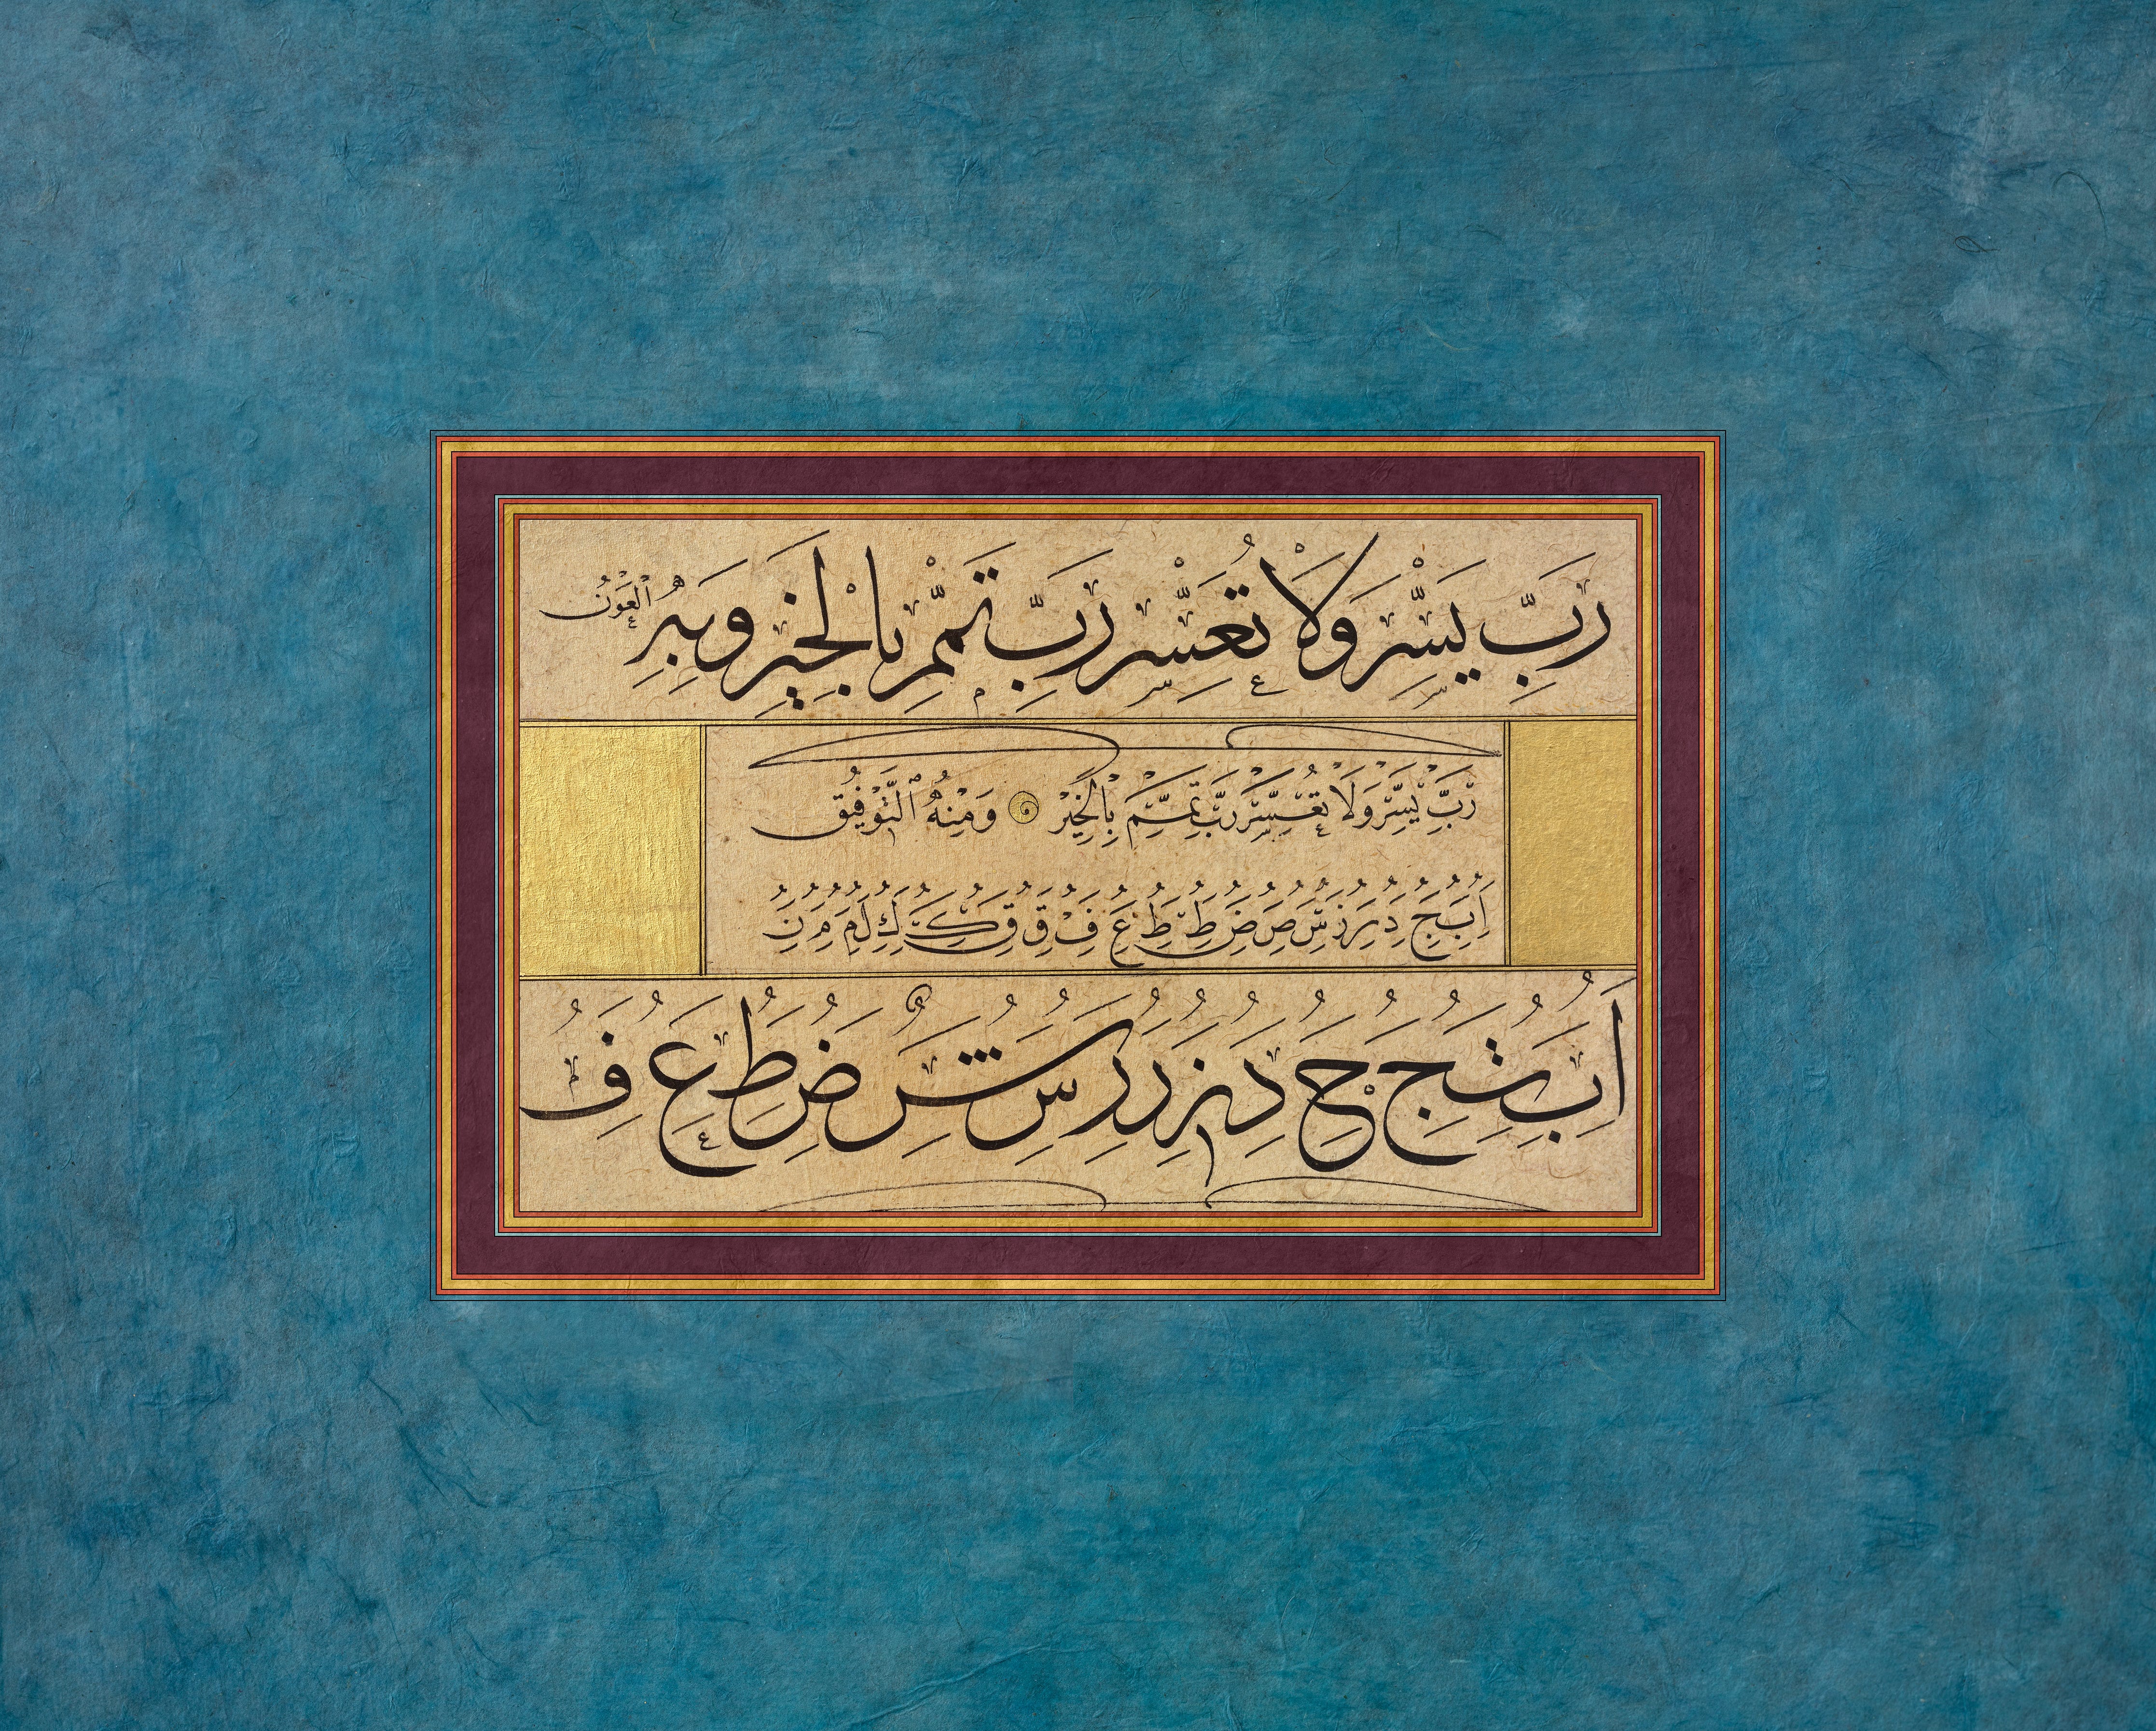 رَبِّ يَسِّرْ وَلَا تُعَسِّرْ رَبِّ تَمِّمْ بِالْخَيْرِ وَبِهِ الْعَوْنُ
رَبِّ يَسِّرْ وَلَا تُعَسِّرْ رَبِّ تَمِّمْ بِالْخَيْرْ وَمِنْهُ ٱلتَّوْفِيقُ
ا ب ج د ر ز س ص ض ط ظ ع ف ق ق ك ك ل م م ن
ا ب ت ج ح د ز ر ر س ش ض ط ع ف